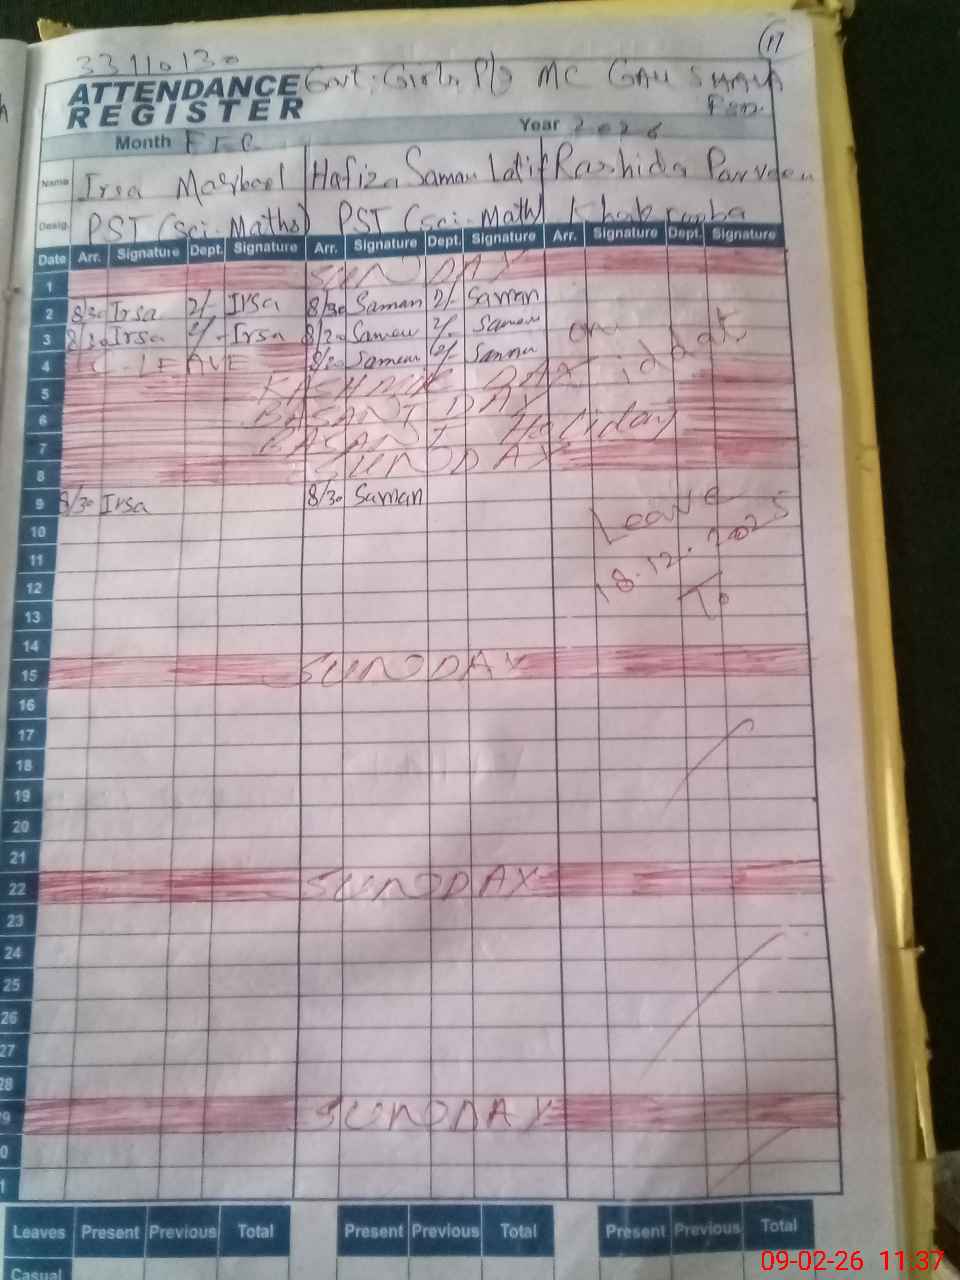 17
33110130
ATTENDANCE Govt. Girls P/S MC
REGISTER
Month FEB Year 2026
Name Irsa Hafiza Saman Latif Rashida Parveen
Desig. PST (Sci-Maths) PST (Sci-Math)
Date Arr. Signature Dept. Signature Arr. Signature Dept. Signature Arr. Signature Dept. Signature
1 SUNODAY
2 8/30 Irsa 2/- Irsa 8/30 Saman 2/- Saman
3 8/30 Irsa 2/- Irsa 8/30 Saman 2/- Saman on
4 C-LEAVE 8/30 Saman 2/- Saman iddat
5 KASHMIR DAY
6 BASANT DAY
7 BASANT Holiday
8 SUNODAY
9 8/30 Irsa 8/30 Saman Leave
10
11 18.12.2025
12 To
13
14
15 SUNODAY
16
17
18
19
20
21
22 SUNODAY
23
24
25
26
27
28
9 SUNODAY
0
1
Leaves Present Previous Total Present Previous Total Present Previous Total
Casual
09-02-26 11:37